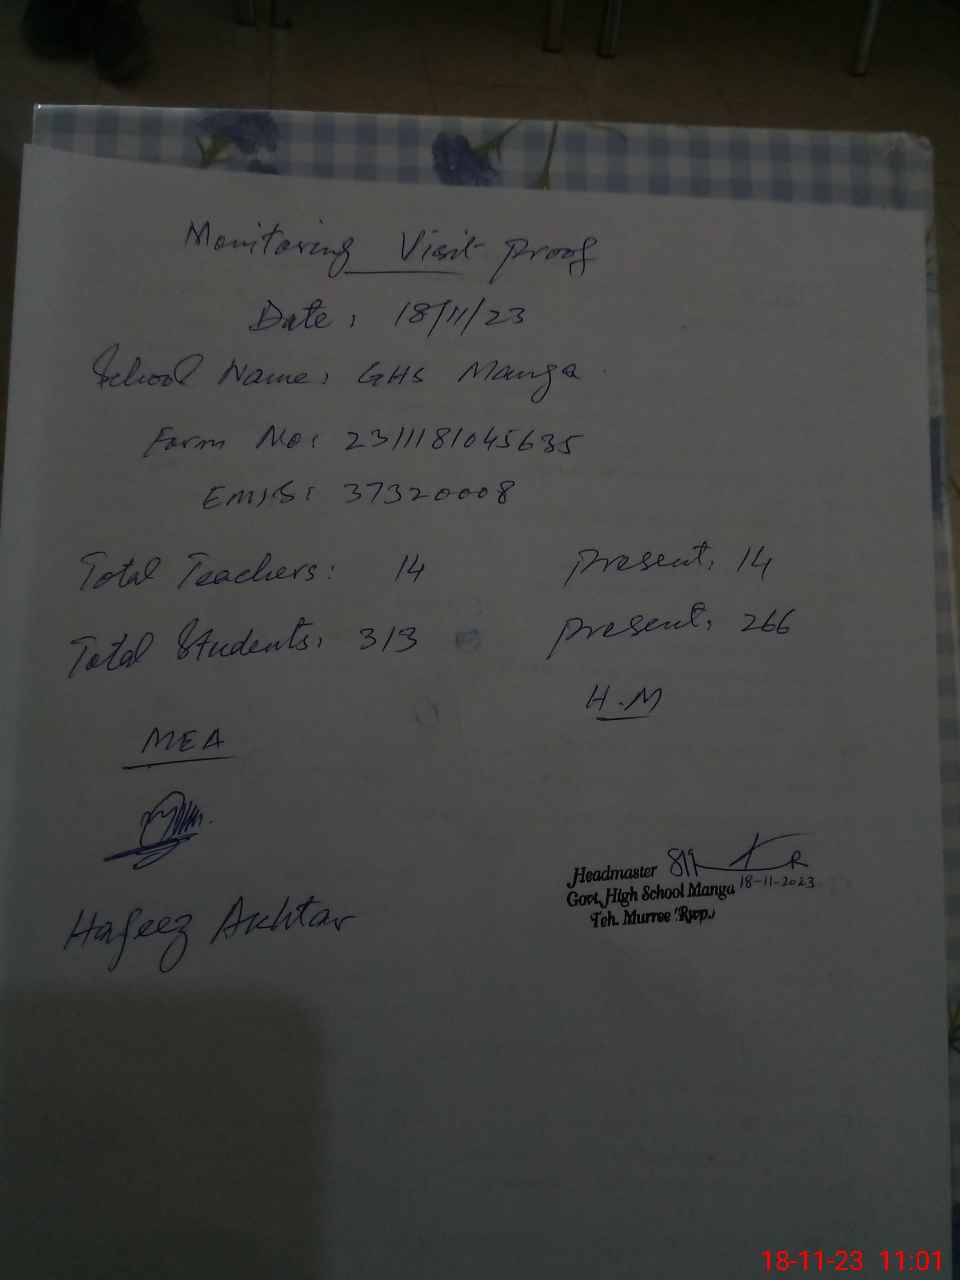 Monitoring Visit Proof
Date: 18/11/23
School Name: GHS Manga
Form No: 2311181045635
EMIS: 37320008
Total Teachers: 14 Present: 14
Total Students: 313 Present: 266
H.M
MEA
Headmaster
Govt. High School Manga 18-11-2023
Teh. Murree (Rwp.)
Hafeez Akhtar
18-11-23 11:01